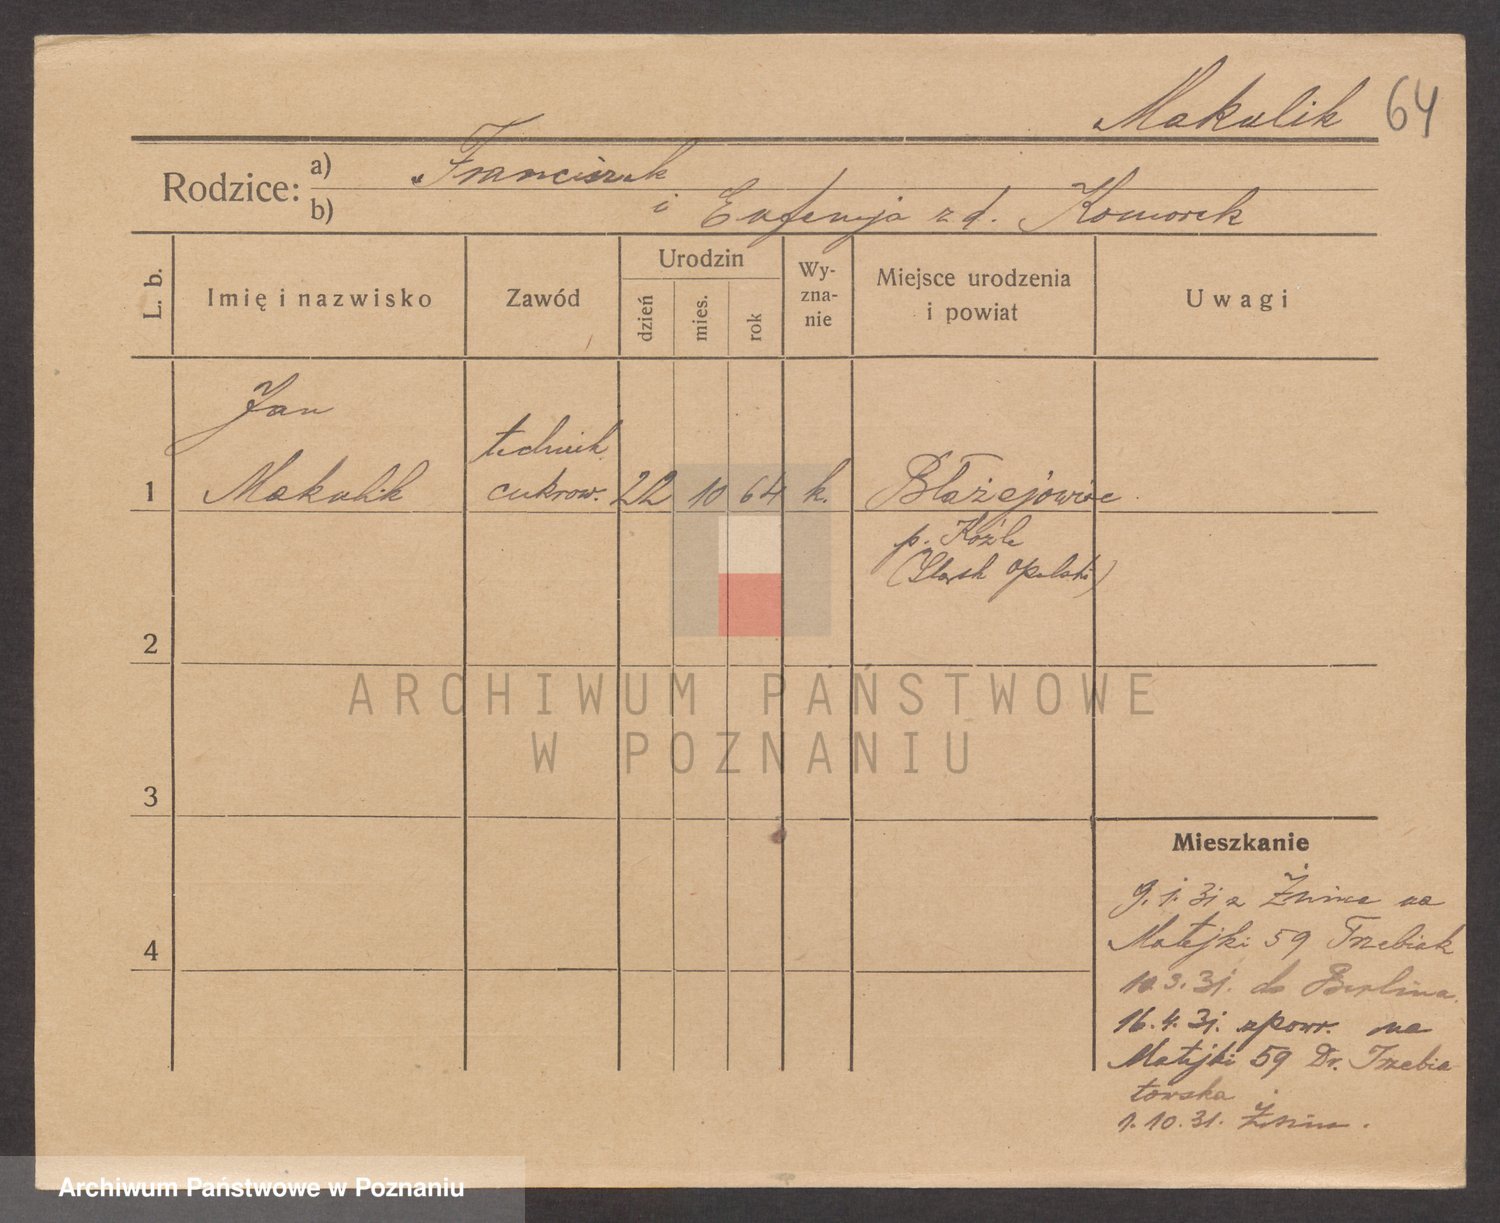 Makulik 64
Rodzice: a) Franciszek
b) i Eufemja zd. Komorek
L. b.
Imię i nazwisko
Zawód
Urodzin
dzień
mies.
rok
Wy-
zna-
nie
Miejsce urodzenia
i powiat
Uwagi
Jan
technik
1 Makulik cukrow. 22 10 64 k. Błażejowice
p. Koźle
(Śląsk opolski)
2
3
4
Mieszkanie
9.1.31 z Żnina na
Matejki 59 Trzebiat
10.3.31. do Berlina.
16.4.31. zpowr. na
Matejki 59 Dr. Trzebia
towska
1.10.31. Żnin.
ARCHIWUM PAŃSTWOWE
W POZNANIU
Archiwum Państwowe w Poznaniu